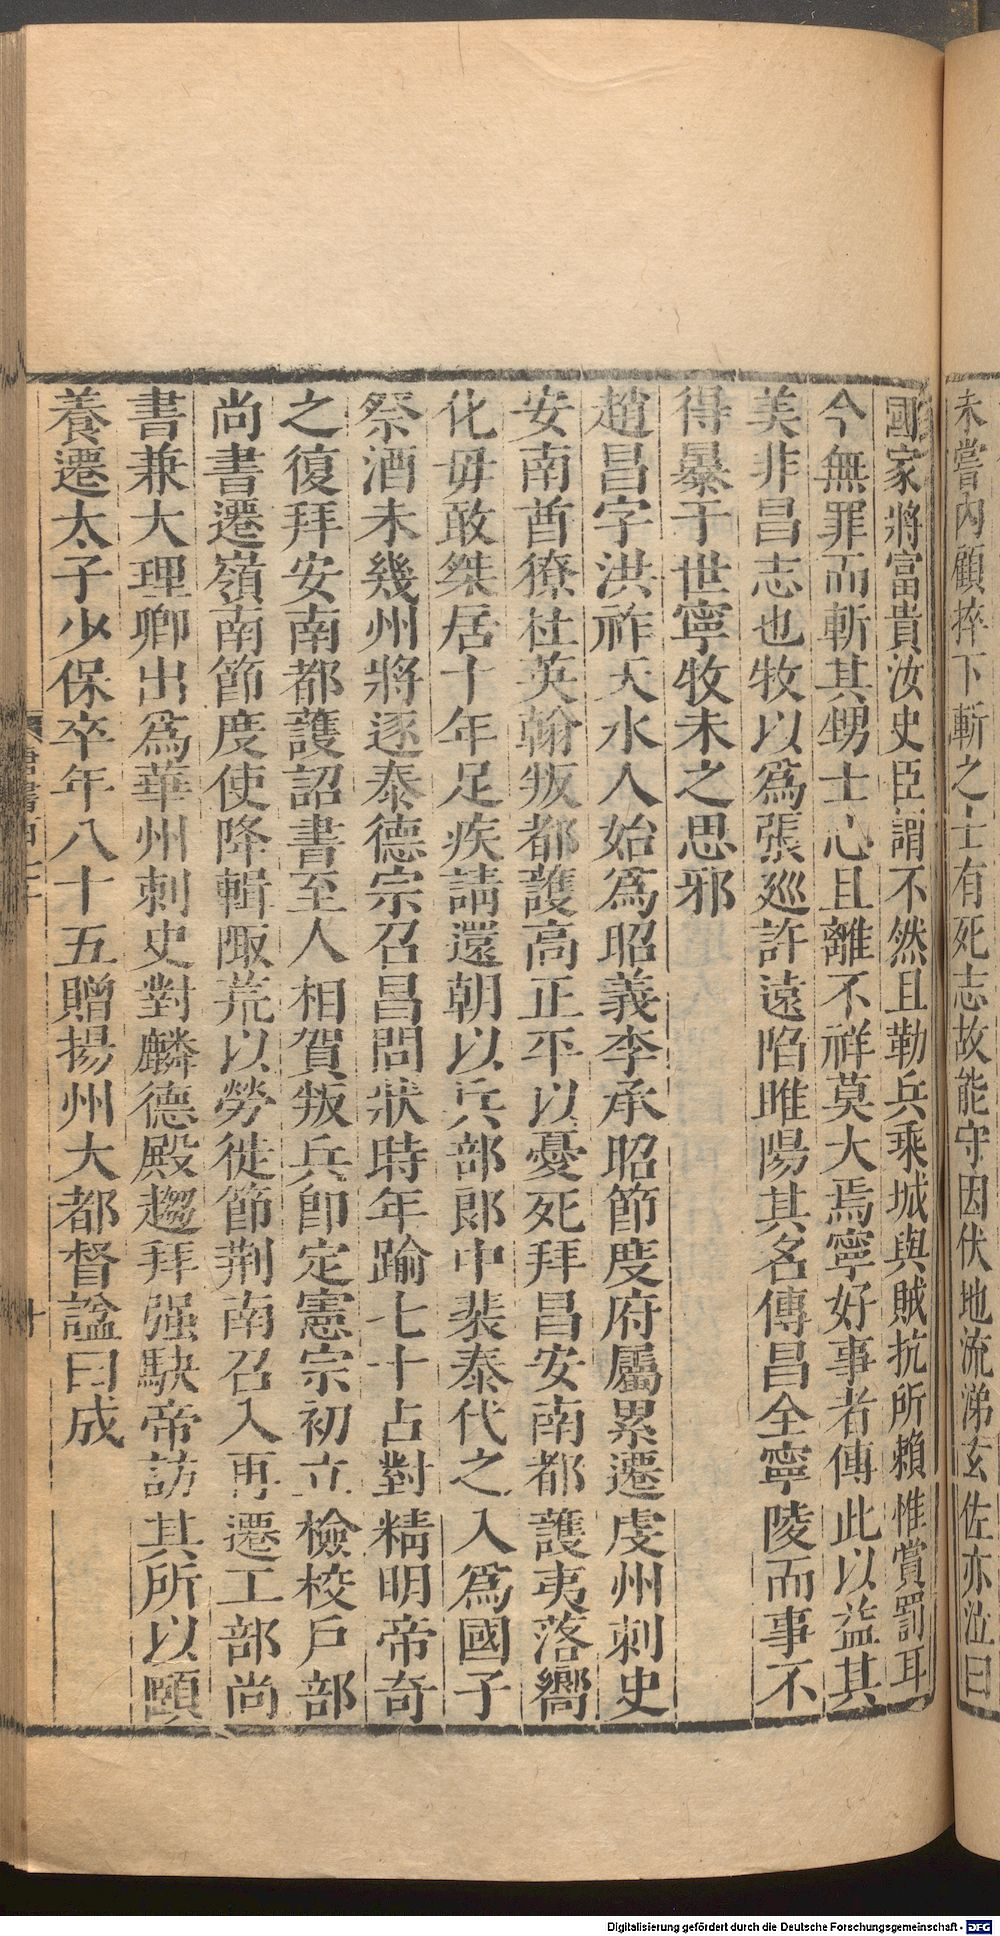 未嘗內顧捽下斬之士有死志故能守因伏地流涕玄佐亦泣曰
國家將富貴汝史臣謂不然且勒兵乘城與賊抗所賴惟賞罰耳
今無罪而斬其甥士心且離不祥莫大焉寧好事者傳此以益其
美非昌志也牧以爲張巡許遠陷睢陽其名傳昌全寧陵而事不
得暴于世寧牧未之思邪
趙昌字洪祚天水人始爲昭義李承昭節度府屬累遷虔州刺史
安南酋獠杜英翰叛都護高正平以憂死拜昌安南都護夷落嚮
化毋敢桀居十年足疾請還朝以兵部郎中裴泰代之入爲國子
祭酒未幾州將逐泰德宗召昌問狀時年踰七十占對精明帝奇
之復拜安南都護詔書至人相賀叛兵卽定憲宗初立檢校戶部
尚書遷嶺南節度使降輯陬荒以勞徙節荆南召入再遷工部尚
書兼大理卿出爲華州刺史對麟德殿趨拜强駃帝訪其所以頤
養遷太子少保卒年八十五贈揚州大都督謚曰成
十
Digitalisierung gefördert durch die Deutsche Forschungsgemeinschaft - DFG